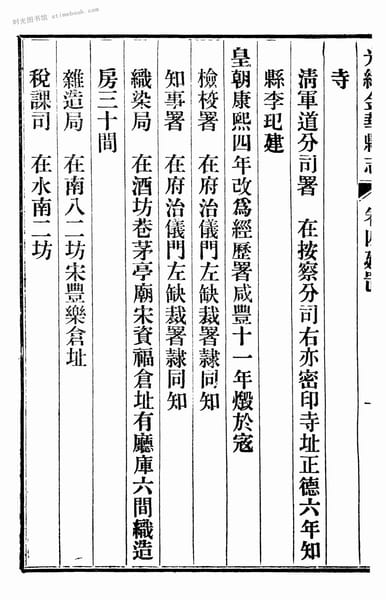 时光图书馆 etimebook.com
光緒金華縣志 卷四建置
寺
清軍道分司署 在按察分司右亦密印寺址正德六年知
縣李玘建
皇朝康熙四年改爲經歷署咸豐十一年燬於寇
檢校署 在府治儀門左缺裁署隸同知
知事署 在府治儀門左缺裁署隸同知
織染局 在酒坊巷茅亭廟宋資福倉址有廳庫六間織造
房三十間
雜造局 在南八二坊宋豐樂倉址
稅課司 在水南二坊